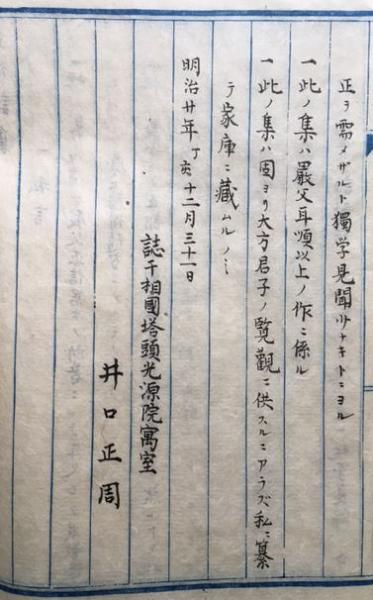 正ヲ需メザルト獨学見聞少ナキトニヨル
一此ノ集ハ嚴父耳順以上ノ作ニ係ル
一此ノ集ハ固ヨリ大方君子ノ覧觀ニ供スルニアラズ私ニ纂
テ家庫ニ藏ムルノミ
明治廿年丁亥十二月三十一日
誌于相國塔頭光源院寓室
井口正周